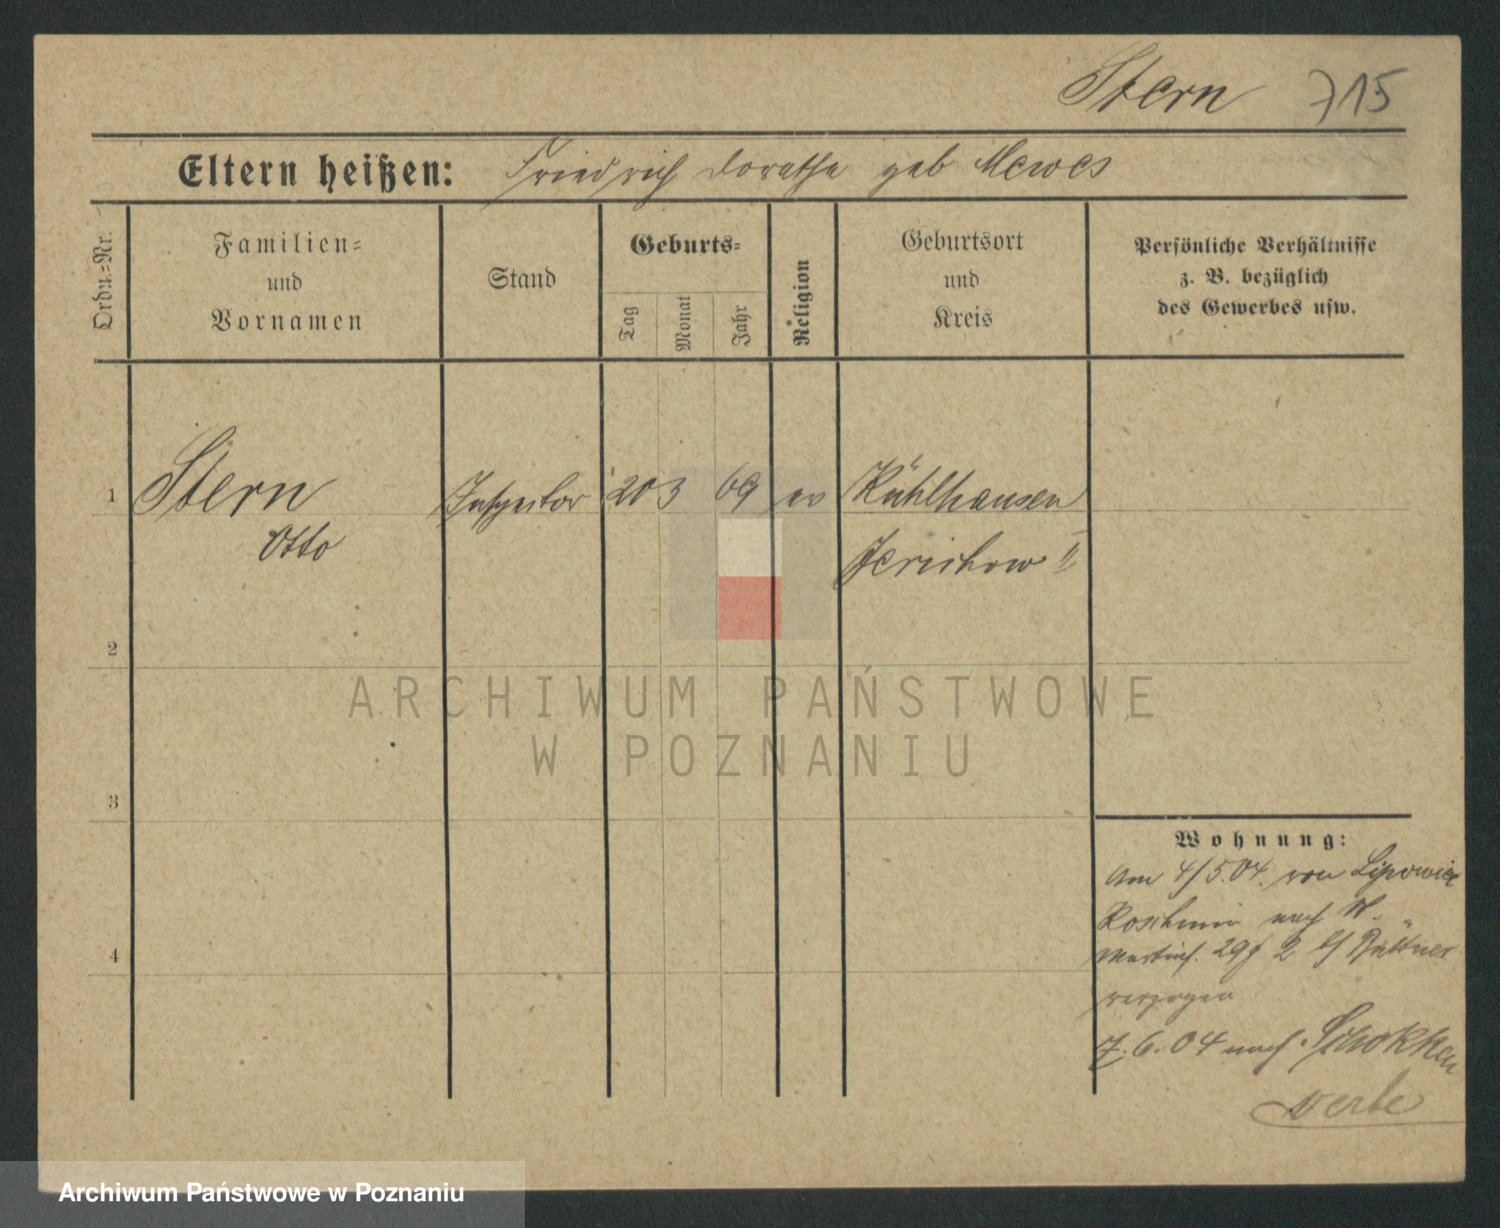 Stern 715
Eltern heißen: Friedrich Dorothe geb Mewes
Ordn.-Nr.
Familien-
und
Vornamen
Stand
Geburts-
Tag
Monat
Jahr
Religion
Geburtsort
und
Kreis
Persönliche Verhältnisse
z. B. bezüglich
des Gewerbes usw.
1 Stern Inspector 20 3 69 ev Kühlhausen
Otto Jerichow II
2
3
4
ARCHIWUM PAŃSTWOWE
W POZNANIU
Wohnung:
Am 4/5.04. von
nach
Martinst. 29 2 b/ Büttner
verzogen
7.6.04 nach Schokken
Archiwum Państwowe w Poznaniu